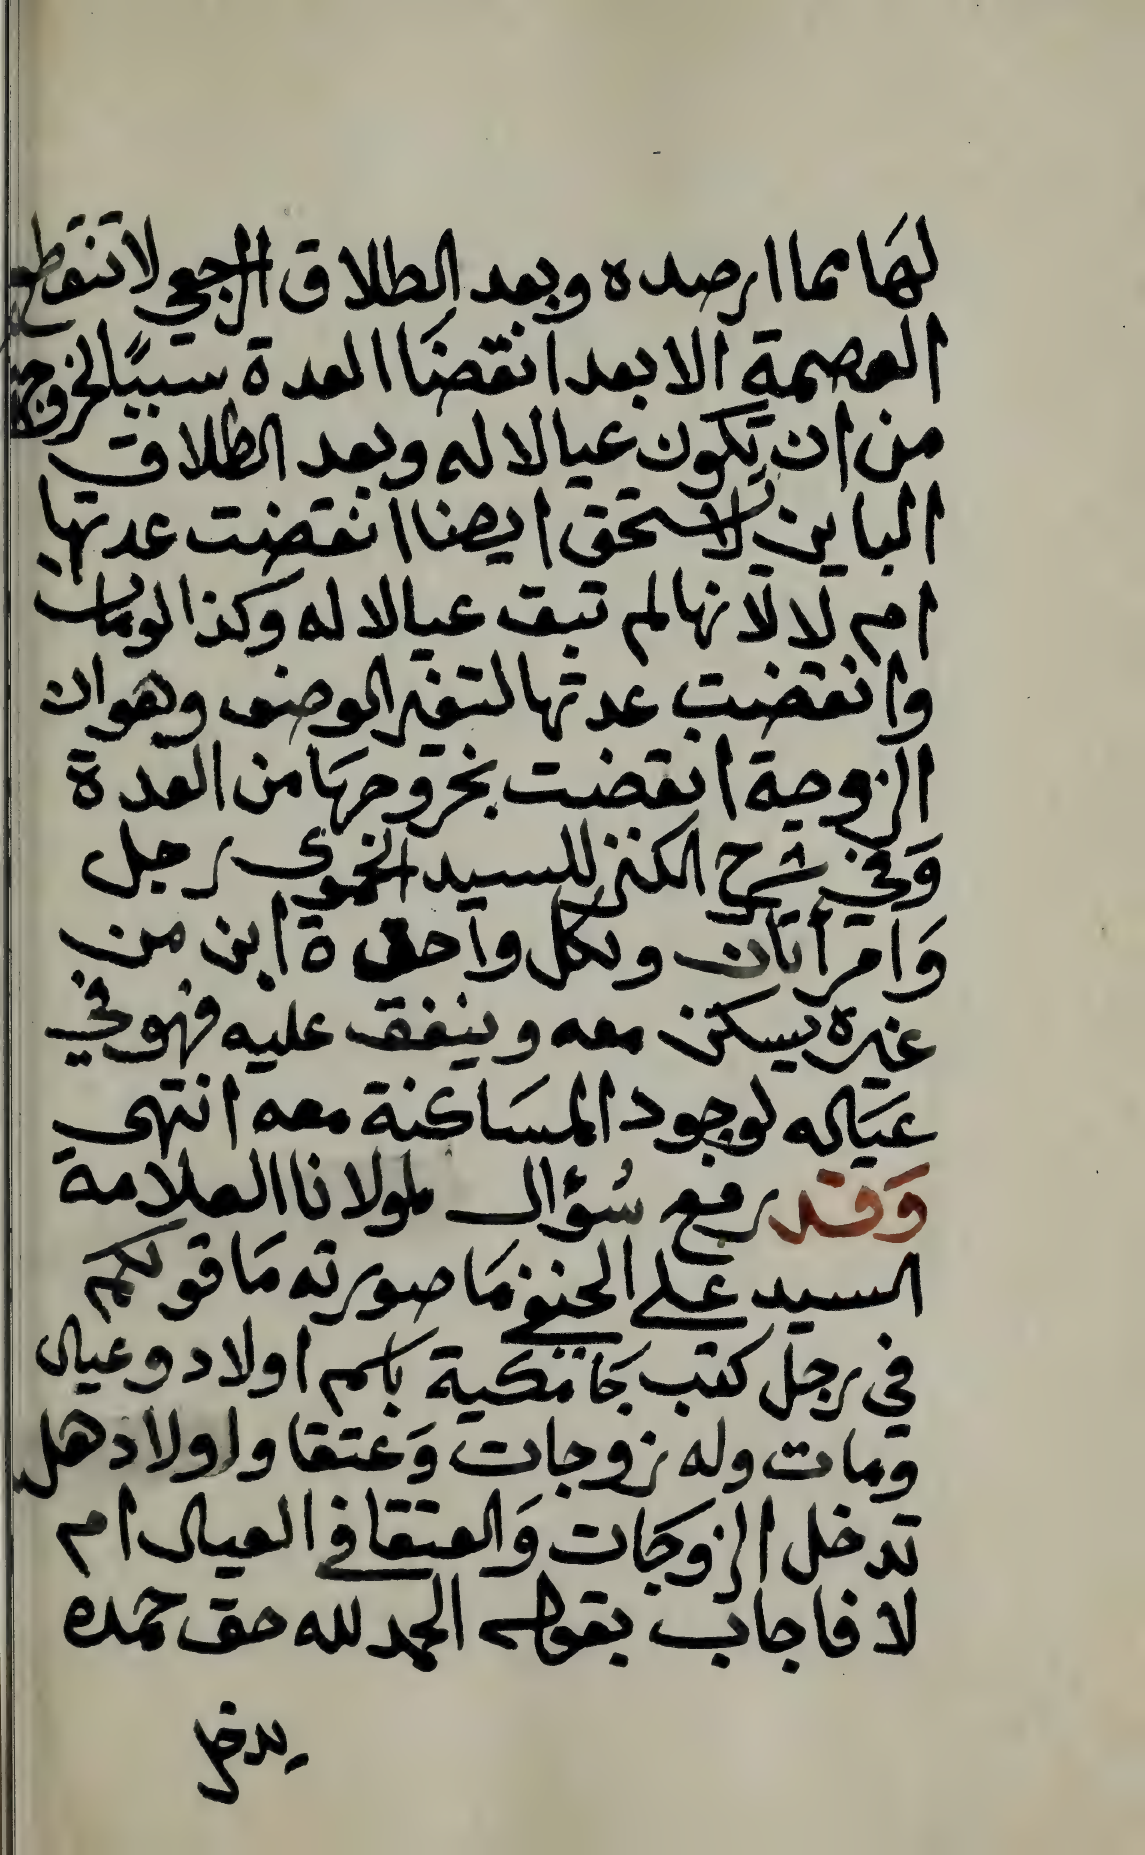 لهَا مما ارصده وبعد الطلاق الرجعي لا تنقطع
العصمة الا بعد انقضَا العدة سببًا لخروجها
من ان تكون عيالا له وبعد الطلاق
الباين لا تستحق ايضا انقضت عدتها
ام لا لانها لم تبق عيالا له وكذا لومات
وانقضت عدتها لتغير الوصف وهو ان
الزوجة انقضت بخروجهَا من العدة
وَفي شرح الكنز للسيد الحموي رجل
وَامرأتان ولكل واحدة ابن من
غيره يسكن معه وينفق عليه فهو في
عيَاله لوجود المسَاكنة معه انتهى
وَقد رفع سُؤال لمولانا العلامة
السيد علي الحنفي مَا صورته مَا قولكم
في رجل كتب جَامكية باسم اولاد وعيال
ومات وله زوجات وَعتقا واولاد هل
تدخل الزوجَات وَالعتقا في العيال ام
لا فاجاب بقوله الحمد لله حق حمده
يدخل